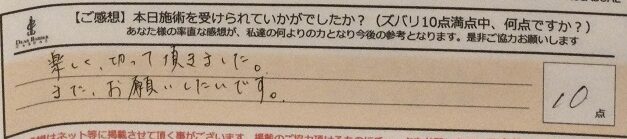 【ご感想】本日施術を受けられていかがでしたか？（ズバリ10点満点中、何点ですか？）
あなた様の率直な感想が、私達の何よりの力となり今後の参考となります。是非ご協力お願いします
楽しく、切って頂きました。
また、お願いしたいです。
10点
はネット等に掲載させて頂く事がございます。